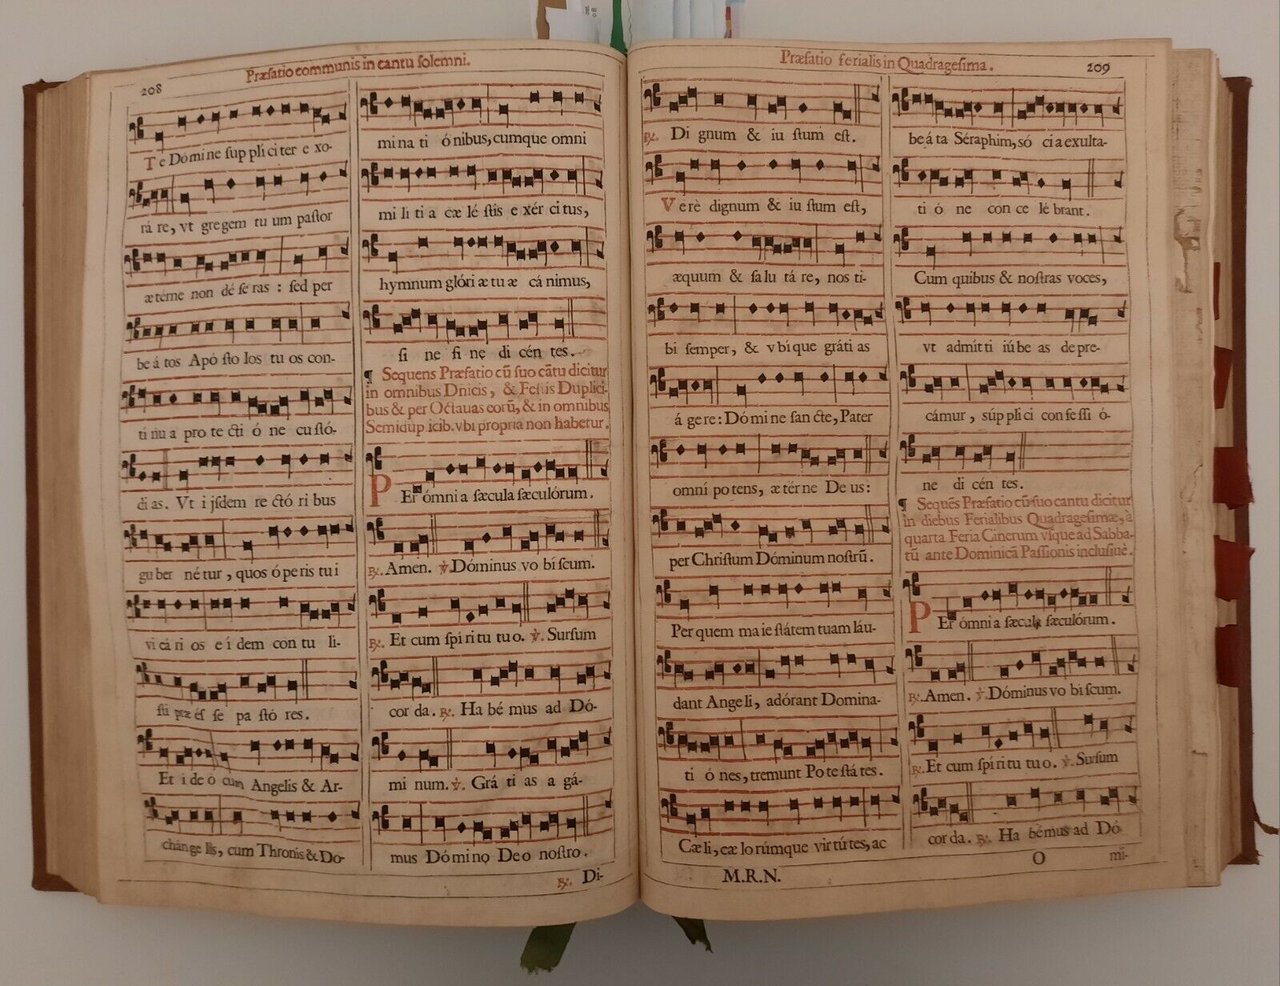 208
Præfatio communis in cantu ſolemni.
Te Dómine ſup pli ci ter e xo-
rá re, vt gregem tu um paſtor
æ térne non dé ſe ras : ſed per
be á tos Apó ſto los tu os con-
ti nu a pro te cti ó ne cu ſtó-
di as. Vt i jſdem re ctó ri bus
gu ber né tur, quos ó pe ris tu i
vi cá ri os e í dem con tu li-
ſti præ éſ ſe pa ſtó res.
Et i de o cum Angelis & Ar-
chánge lis, cum Thronis & Do-
mi na ti ó nibus, cumque omni
mi li ti a cæ lé ſtis e xér ci tus,
hymnum glóri æ tu æ cá nimus,
ſi ne fi ne di cén tes.
¶ Sequens Præfatio cū ſuo cātu dicitur
in omnibus Dñicis, & Feſtis Duplici-
bus & per Octauas eorū, & in omnibus
Semidup icib. vbi propria non habetur.
PEr ómni a ſæcula ſæculórum.
℟. Amen. ℣. Dóminus vo bi ſcum.
℟. Et cum ſpí ri tu tu o. ℣. Surſum
cor da. ℟. Ha bé mus ad Dó-
mi num. ℣. Grá ti as a gá-
mus Dómino Deo noſtro.
℟. Di-
Præfatio ferialis in Quadrageſima.
209
℟. Di gnum & iu ſtum eſt.
Verè dignum & iu ſtum eſt,
æquum & ſa lu tá re, nos ti-
bi ſemper, & vbi que gráti as
á gere: Dómi ne ſan cte, Pater
omni po tens, æ térne De us:
per Chriſtum Dóminum noſtrū.
Per quem ma ie ſtátem tuam láu-
dant Angeli, adórant Domina-
ti ó nes, tremunt Po te ſtá tes.
Cæli, cæ lo rúmque vir tú tes, ac
be á ta Séraphim, só ci a exulta-
ti ó ne con ce lé brant.
Cum quibus & noſtras voces,
vt admít ti iú be as de pre-
cámur, súp pli ci con fe ſſi ó-
ne di cén tes.
¶ Sequēs Præfatio cū ſuo cantu dicitur
in diebus Ferialibus Quadrageſimæ, à
quarta Feria Cinerum vſque ad Sabba-
tū ante Dominicā Paſſionis incluſiuè.
PEr ómni a ſæcula ſæculórum.
℟. Amen. ℣. Dóminus vo bi ſcum.
℟. Et cum ſpí ri tu tu o. ℣. Surſum
cor da. ℟. Ha bé mus ad Dó
M.R.N.
O
mi-